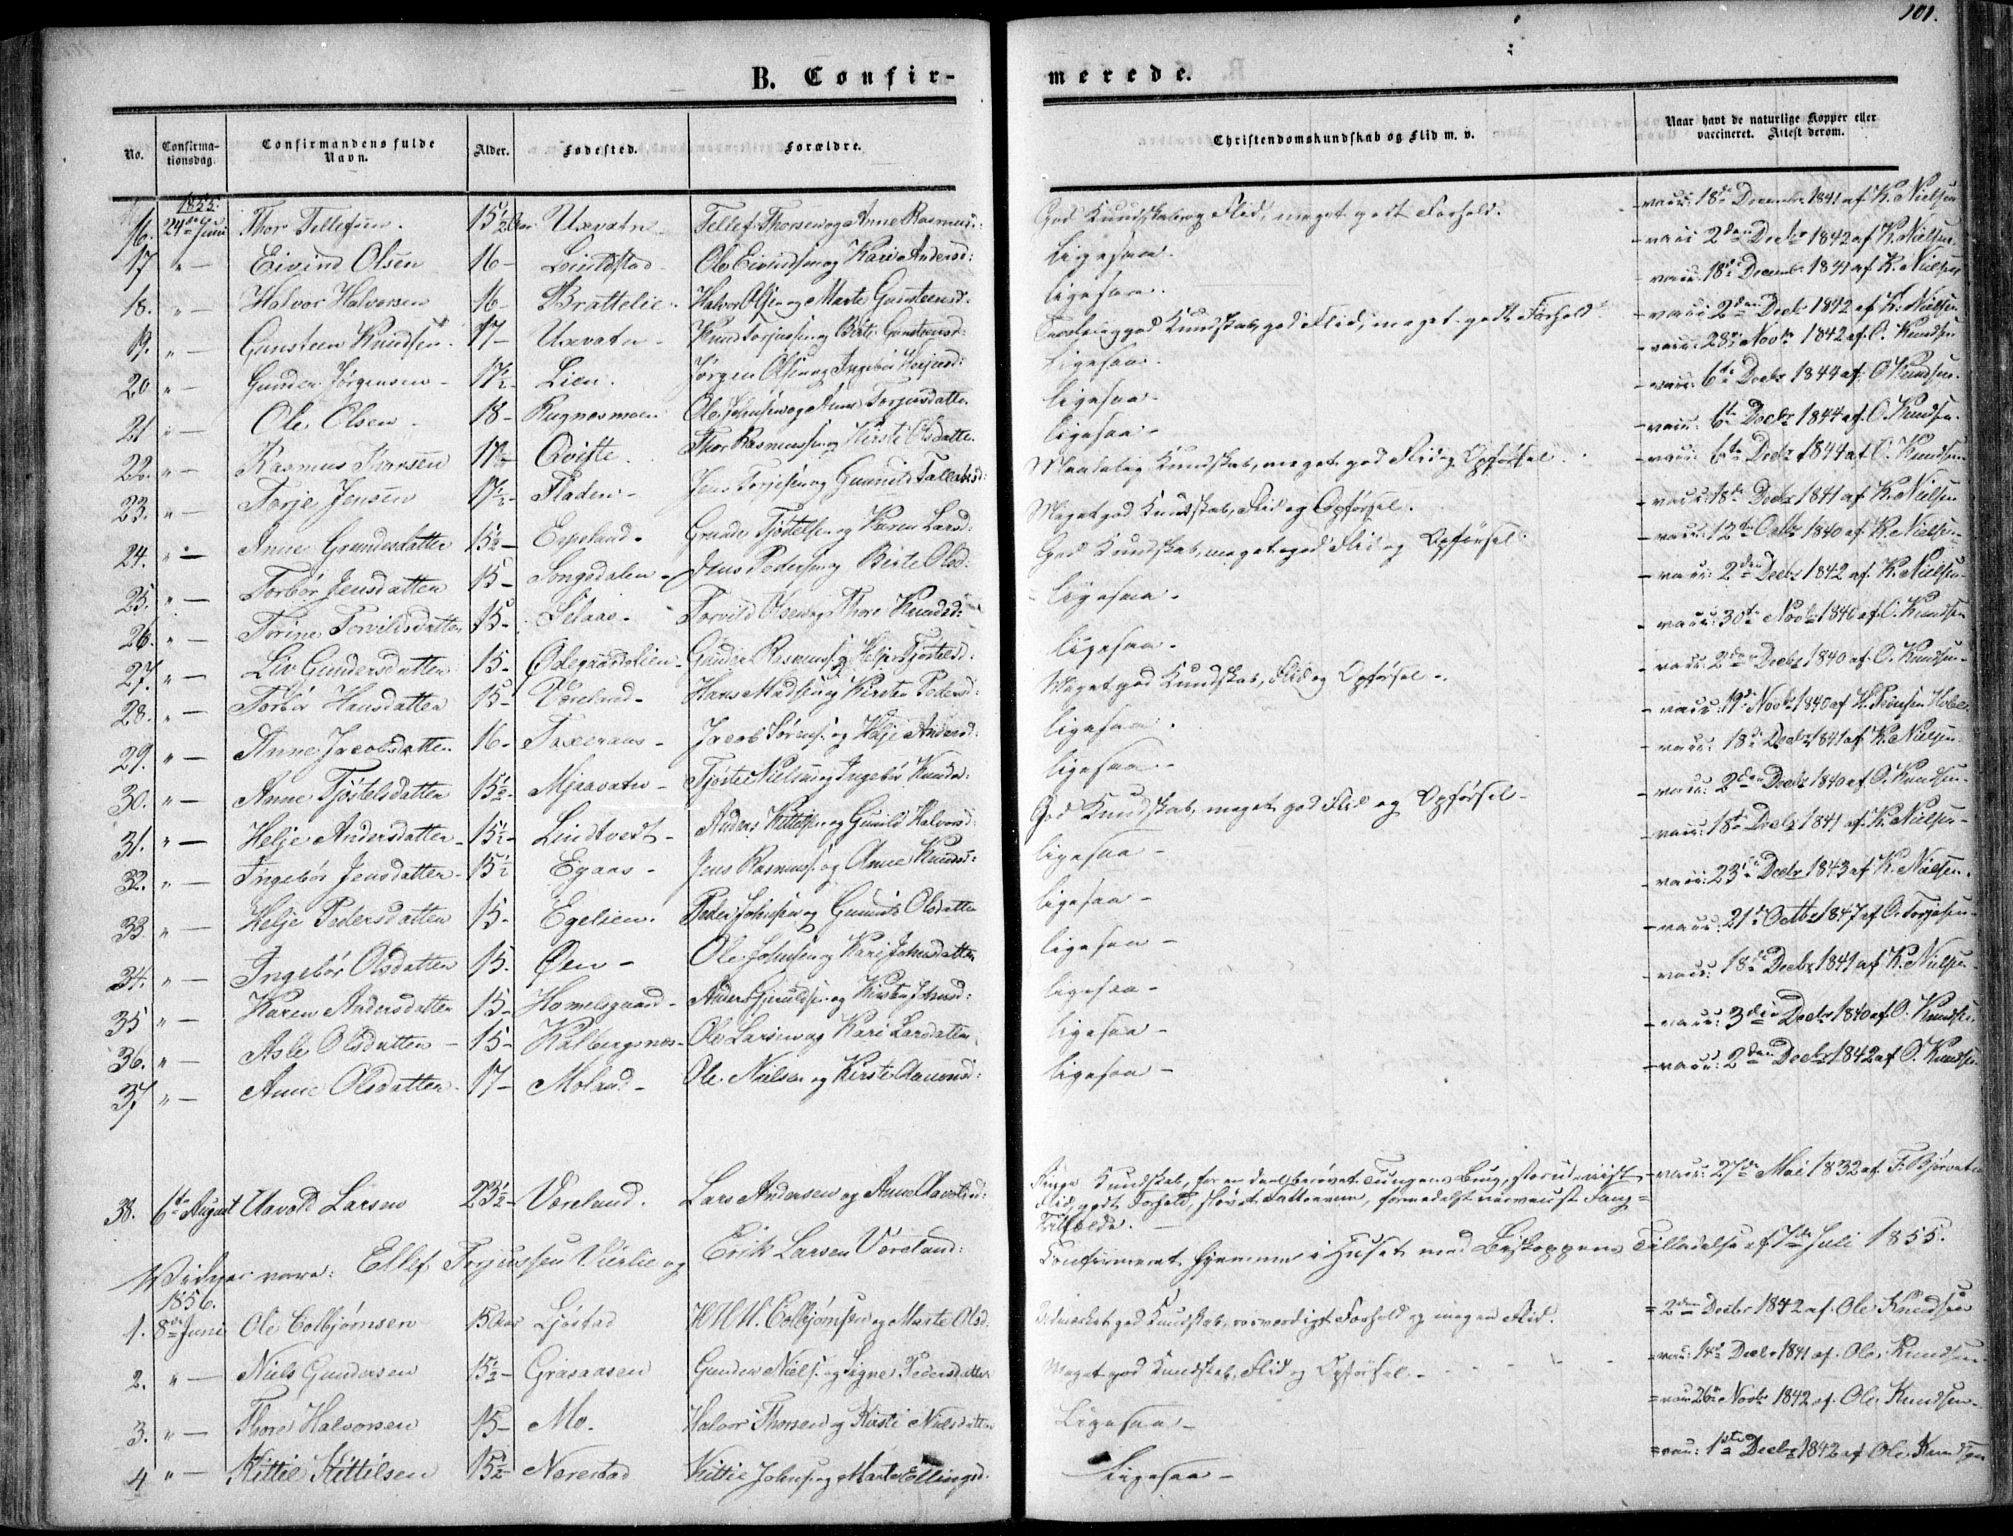 101.
B. Confirmerede.
No. Confirmationsdag. Confirmandens fulde Navn. Alder. Fødested. Forældre. Christendomskundskab og Flid m. v. Naar havt de naturlige Kopper eller vaccineret. Attest derom.
1855.
16. 24de Juni Thor Tellefsen 15½ Aar Uxevatn Tellef Thorsen og Anne Rasmusd: God Kundskab og Flid, meget godt Forhold. vacc: 18de Decembr 1841 af K. Nielsen
17 " — Eivind Olsen 16 - Ole Eivindsen og Kari Andersd: ligesaa. - vacc 2den Decbr 1842 af K. Nielsen
18. " — Halvor Halvorsen 16 - Brattelie Halvor Olsen og Marte Gunsteensd: ligesaa. - vacc: 18de Decembr 1841 af K. Nielsen
19. " — Gunsteen Knudsen 17 - Uxevatn Knud Torjussen og Berte Gunsteensd: Temlig god Kundskab, god Flid, meget godt Forhold. - vacc: 2den Decbr 1842 af K. Nielsen
20 " — Gunder Jørgensen 17½ - Lien. Jørgen Olsen og Ingebør ligesaa. - vacc: 28de Novbr 1842 af O. Knudsen
21 " — Ole Olsen 18 - Rugnesmoen Ole Johnsen og Anne Torjusdatter ligesaa. - vacc: 6te Decbr 1844 af O Knudsen.
22. " — Rasmus Thorsen 17½ Qviste. Thor Rasmussen og Kirsti Olsdatter ligesaa. - vacc: 6te Decbr 1844 af O. Knudsen.
23. " — Torje Jensen 17½ - Fladen - Jens Torjesen og Gunnild Tallaksd: Maadelig Kundskab, meget god Flid og Opførsel. - vacc: 6te Decbr 1844 af O. Knudsen
24. " — Anne Gundersdatter 15½ - Espeland - Gunder Tjøstelsen og Karen Larsd: Meget god Kundskab, Flid og Opførsel. - vacc: 18de Decbr 1841 af K. Nielsen
25. " — Torbør Jensdatter 15 - Songedalen - Jens Pedersen og Berte Olsd: God Kundskab, meget god Flid og Opførsel - vacc: 12te Octbr 1840 af K. Nielsen
26. " — Torine Torvildsdatter 15 - Selaas - Torvild Olsen og Thore Knudsd: ligesaa - - vacc: 2den Decbr 1842 af K. Nielsen
27. " — Liv Gundersdatter 15 - Ødegaardslien - Gunder Rasmuss. og Helje Tjøstelsd: ligesaa - - vacc: 30te Novbr 1840 af O. Knudsen
28. " — Torbør Hansdatter 15 - Væreland - Hans Madsen og Kirsten Pedersd: Meget god Kundskab, Flid og Opførsel - - vacc: 2den Decbr 1840 af O. Knudsen
29. " — Anne Jacobsdatter 16 - Taxeraas - Jacob Sørens. og Helje Andersd: ligesaa. - vacc: 19de Novbr 1840 af
30. " — Anne Tjøstelsdatter 15½ - Mjaavatn - Tjøstel Nielsen og Ingebør Knudsd: ligesaa - - vacc: 18de Decbr 1841 af K. Nielsen
31. " — Helje Andersdatter 15½ - Lindtvedt - Anders Kittelsen og Gunild Halvorsd: God Kundskab, meget god Flid og Opførsel - - vacc: 2den Decbr 1840 af O. Knudsen
32. " — Ingebør Jensdatter 15½ Egaas - Jens Rasmuss. og Anne Knudsd: ligesaa - - vacc: 18de Decbr 1841 af K. Nielsen
33 " — Helje Pedersdatter 15 - Egelien. Peder Johnsen og Gunnild Olsdatter ligesaa - - vacc: 23de Decbr 1843 af K. Nielsen.
34. " — Ingebør Olsdatter 15. Øen - Ole Johnsen og Kari Johnsdatter ligesaa - - vacc: 21de Octbr 1847 af O. Torjesen
35 " — Karen Andersdatter 15 - Homelsgaard - Anders og Kirsten Johnsd: ligesaa - - vacc: 18de Decbr 1841 af K. Nielsen
36. " — Asle Olsdatter 15 - Kalbergsnes - Ole Larsen og Kari Larsdatter ligesaa - - vacc: 3die Decbr 1840 af O. Knudsen
37 " — Anne Olsdatter 17 - Moland - Ole Nielsen og Kirste Aanonsd: ligesaa - - vacc: 2den Decbr 1842 af O. Knudsen
38. 6te August Aavold Larsen 23½ - Væreland. Lars Andersen og Anne Aavoldsd: Kundskab, for en deel berøvet Tungens Brug, udviist - vacc: 27de Mai 1832 af T. Bjørvatn
Flid, godt Forhold,
Tilfælde.
Confirmeret hjemme i Huset med Biskoppens Tilladelse af 7de Juli 1855.
Vidner vare: Ellef Torjussen Vierlie og Erik Larsen Væreland:
1856.
1. 8de Juni Ole Colbjørnsen 15 Aar Ljøstad Colbjørnsen og Marte Olsd. Udmærket god Kundskab, rosværdigt Forhold og megen Flid. = 2den Decbr 1842 af Ole Knudsen
2. " — Niels Gundersen 15½ - Grasaasen Gunder Niels. og Signe Pedersdatter Meget god Kundskab, Flid og Opførsel - = vac: 14de Decbr 1841 af Ole Knudsen
3. " — Thore Halvorsen 15 - Mo. Halvor Thorsen og Kirsti Nielsdatter Ligesaa - = vac: 26de Novbr 1842 af Ole Knudsen
4 " — Kittil Kittilsen 15½ - Nerestad Kittil Johns. og Marte Ellingsd. Ligesaa - = vac: 1ste Decbr 1842 af Ole Knudsen